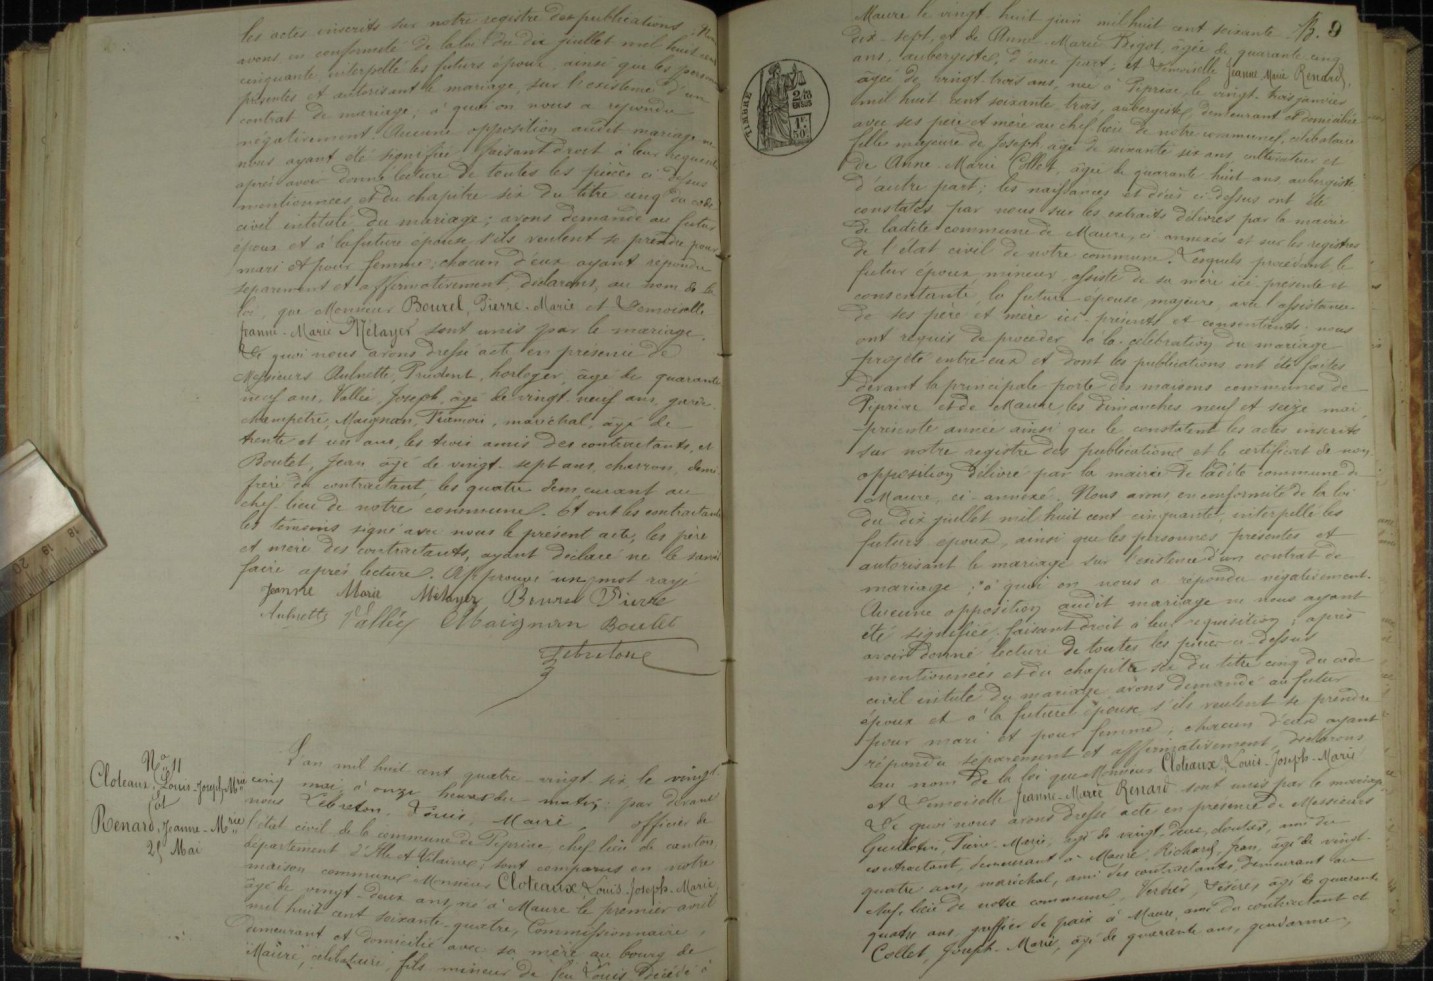 les actes inscrits sur notre registre des publications. Nous
avons en conformité de la loi du dix juillet mil huit cent
cinquante, interpellé les futurs époux, ainsi que les personnes
présentes et autorisant le mariage, sur l'existence d'un
contrat de mariage, à quoi on nous a répondu
négativement. Aucune opposition audit mariage ne
nous ayant été signifiée faisant droit à leur requête
après avoir donné lecture de toutes les pièces ci-dessus
mentionnées et du chapitre six du titre cinq du code
civil intitulé du mariage; avons demandé au futur
époux et à la future épouse s'ils veulent se prendre pour
mari et pour femme; chacun d'eux ayant répondu
séparément et affirmativement, déclarons, au nom de la
loi, que Monsieur Bourel, Pierre-Marie et Demoiselle
Jeanne-Marie Métayer sont unis par le mariage.
De quoi nous avons dressé acte en présence de
Messieurs Aubnette, Prudent, horloger, âgé de quarante
neuf ans, Vallée, Joseph, âgé de vingt-neuf ans, garde-
champêtre, Maignan, François, maréchal, âgé de
trente et un ans, les trois amis des contractants, et
Boutet, Jean âgé de vingt-sept ans, charron, demi
frère du contractant, les quatre demeurant au
chef lieu de notre commune. Et ont les contractants
les témoins signé avec nous le présent acte, les père
et mère des contractants, ayant déclaré ne le savoir
faire après lecture. Approuvé un mot rayé
Jeanne Marie Métayer Bourel Pierre
Aubnette Vallée Maignan Boutet
Lebreton
No 11
Cloteaux, Louis-Joseph-Mrie
et
Renard, Jeanne-Mrie
25 Mai
L'an mil huit cent quatre-vingt six le vingt
cinq mai, à onze heures du matin, par devant
nous Lebreton, Louis, Maire, officier de
l'état civil de la commune de Pipriac, chef lieu de canton,
département d'Ille et Vilaine; sont comparus en notre
maison commune Monsieur Cloteaux, Louis-Joseph-Marie,
âgé de vingt-deux ans, né à Maure le premier avril
mil huit cent soixante-quatre, Commissionnaire,
demeurant et domicilié avec sa mère au bourg de
Maure, célibataire, fils mineur de feu Louis décédé à
9
TIMBRE
Maure le vingt-huit juin mil huit cent soixante
dix-sept, et de Anne-Marie Rigot, âgée de quarante cinq
ans, aubergistes, d'une part; et Demoiselle Jeanne Marie Renard,
âgée de vingt trois ans, née à Pipriac, le vingt-trois janvier
mil huit cent soixante trois, aubergiste, demeurant et domiciliée
avec ses père et mère au chef lieu de notre commune, célibataire
fille majeure de Joseph, âgé de soixante six ans, cultivateur et
de Anne-Marie Collet, âgée de quarante huit ans, aubergiste
d'autre part; les naissances et décès ci-dessus ont été
constatés par nous sur les extraits délivrés par la mairie
de ladite commune de Maure, ci annexés et sur les registres
de l'état civil de notre commune. Lesquels procédant le
futur époux mineur assisté de sa mère ici présente et
consentante, la future épouse majeure, avec l'assistance
de ses père et mère ici présents et consentants, nous
ont requis de procéder à la célébration du mariage
projeté entre eux et dont les publications ont été faites
devant la principale porte des maisons communes de
Pipriac et de Maure, les dimanches neuf et seize mai,
présente année ainsi que le constatent les actes inscrits
sur notre registre des publications et le certificat de non
opposition délivré par la mairie de ladite commune de
Maure, ci-annexé. Nous avons en conformité de la loi
du dix juillet mil huit cent cinquante, interpellé les
futurs époux, ainsi que les personnes présentes et
autorisant le mariage sur l'existence d'un contrat de
mariage; à quoi on nous a répondu négativement.
Aucune opposition audit mariage ne nous ayant
été signifiée, faisant droit à leur réquisition; après
avoir donné lecture de toutes les pièces ci-dessus
mentionnées et du chapitre six du titre cinq du code
civil intitulé du mariage, avons demandé au futur
époux et à la future épouse s'ils veulent se prendre
pour mari et pour femme, chacun d'eux ayant
répondu séparément et affirmativement, déclarons
au nom de la loi que Monsieur Cloteaux, Louis-Joseph-Marie
et Demoiselle Jeanne-Marie Renard sont unis par le mariage
De quoi nous avons dressé acte en présence de Messieurs
Pierre-Marie, âgé de vingt-deux, ami du
contractant, demeurant à Maure, Richard, Jean, âgé de vingt-
quatre ans, maréchal, ami des contractants, demeurant au
chef-lieu de notre commune, Désiré, âgé de quarante
quatre ans, greffier de paix à Maure, ami du contractant et
Collet, Joseph-Marie, âgé de quarante ans, gendarme,